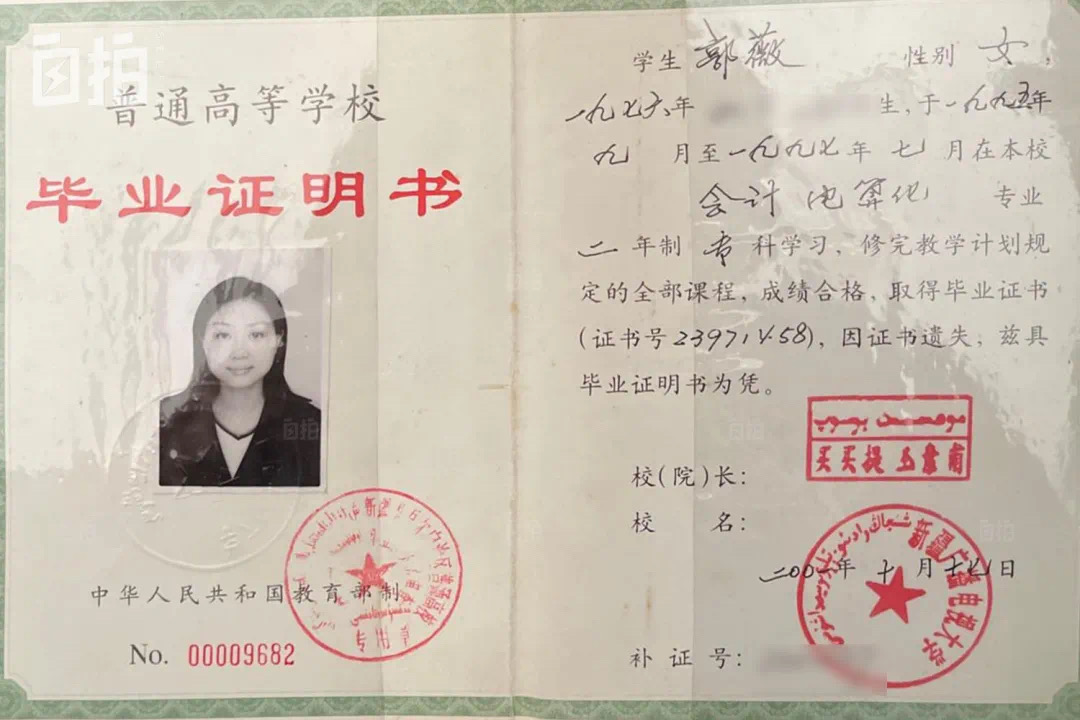 自拍
普通高等学校
毕业证明书
中华人民共和国教育部制
No. 00009682
学生 郭薇 性别 女，
一九七六年 生，于一九九五年
九 月至一九九七年 七 月在本校
会计电算化 专业
二 年制 专 科学习，修完教学计划规
定的全部课程，成绩合格，取得毕业证书
(证书号 )，因证书遗失，兹具
毕业证明书为凭。
买买提玉素甫
校(院)长：
校 名：
新疆广播电视大学
二00一年 十 月 十七日
补 证 号：
自拍
自拍
自拍